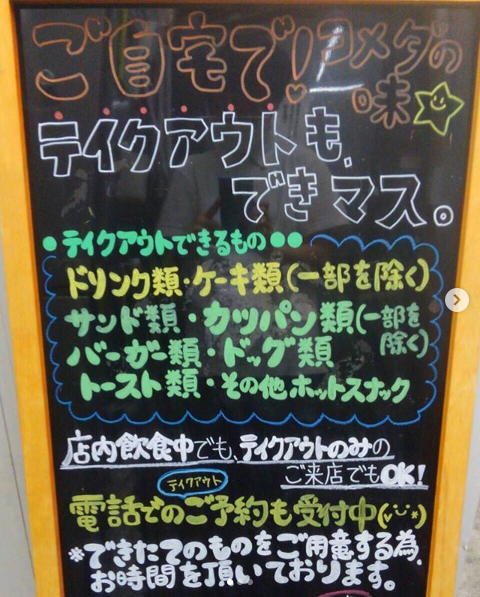 ご自宅で!コメダの味
テイクアウトも、
できマス。
●テイクアウトできるもの●●
ドリンク類・ケーキ類(一部を除く)
サンド類・カツパン類(一部を除く)
バーガー類・ドッグ類
トースト類・その他ホットスナック
店内飲食中でも、テイクアウトのみの
ご来店でもOK!
テイクアウト
電話でのご予約も受付中
※できたてのものをご用竟する為、
お時間を頂いております。